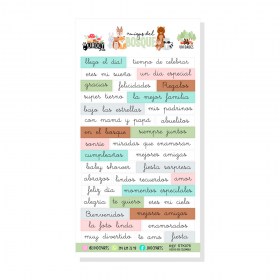 amigos del
BOSQUE
llegó el día! tiempo de celebrar
eres mi sueño un día especial
gracias felicidades Regalos
super tierno la mejor familia
bajo las estrellas mis padrinos
con mamá y papá abuelitos
en el bosque siempre juntos
sonríe miradas que enamoran
cumpleaños mejores amigos
baby shower fiesta sorpresa
abrazos lindos recuerdos amor
feliz día momentos especiales
alegría te quiero eres mi cielo
Bienvenidos mejores amigas
la foto linda enamorados
muy divertido te amo fiesta